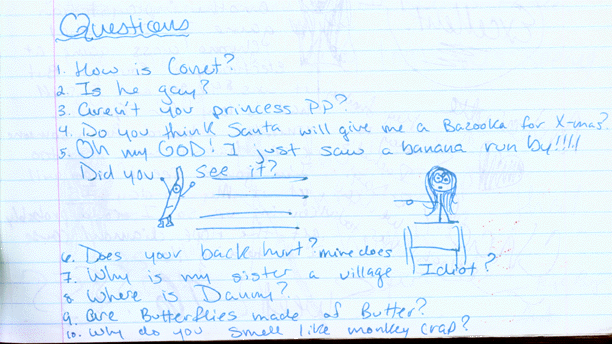 Questions
1. How is Conet?
2. Is he gay?
3. Aren't you princess PP?
4. Do you think Santa will give me a Bazooka for X-mas?
5. Oh my GOD! I just saw a banana run by!!!!
Did you see it?
6. Does your back hurt? mine does
7. Why is my sister a village Idiot?
8. Where is Danny?
9. Are Butterflies made of Butter?
10. Why do you smell like monkey crap?